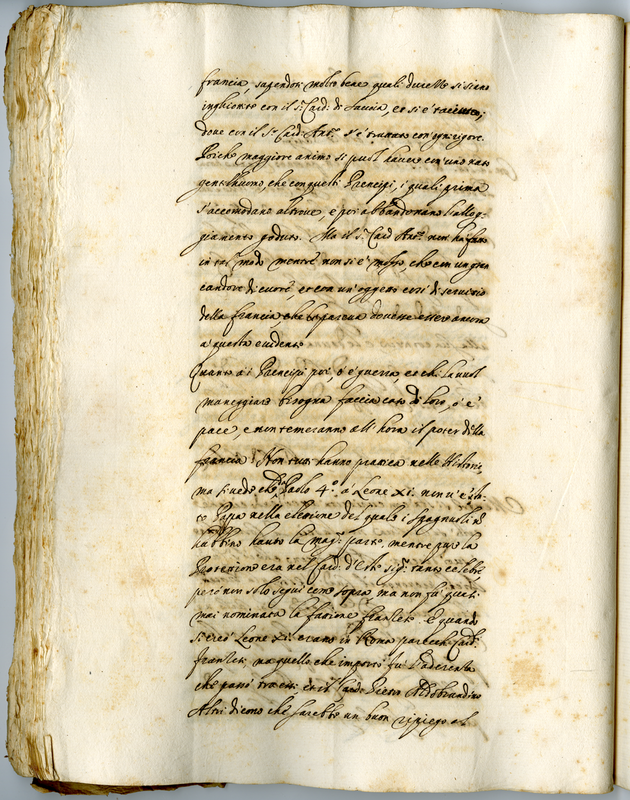 francia, sapendosi molto bene quali duretto si siano
con il s.r Card: di Sauoia, et si è taciuto;
doue con il s.r Card: Ant.o s'è trattato con ogni rigore.
Poiche maggiore animo si può hauere con uno nato
gentilhuomo, che con quelli Prencipi, i quali prima
s'accomodano altroue, e poi abbandonano l'allog-
giamento goduto. Ma il s.r Card Ant.o non ha fatto
in tal modo mentre non si è mosso, che con un gran
candore di cuore, et con un' oggetto di seruitio
della francia, che le pareua douesse essere ancora
a questo euidente
Quanto a i Prencipi poi, ò è guerra, et chi la uuol
maneggiare bisogna faccia caso di loro, ò è
pace, e non temeranno all' hora il poter della
francia. Non tutti hanno pratica nelle Historie,
ma si uede che da Paolo 4.o à Leone xi. non u' è sta-
to Papa nella elettione del quale i Spagnuoli non
habbino hauto la mag.r parte, mentre pur la
Protettione era nel Card: d'Este sig.r tanto celebre,
però non solo seguì come sopra, ma non fù quasi
mai nominata la fattione franzese. E quando
si creò Leone xi. erano in Roma parecchi Card:
franzesi, ma quello che importò fu l'aderenza
che passò tra essi et il Card: Pietro Aldobrandino
Altri dicono che sarebbe un buon ripiego